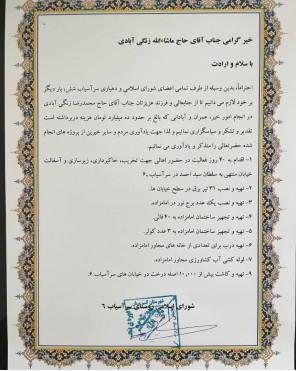 خیر گرامی جناب آقای حاج ماشاءالله زنگی آبادی
با سلام و ارادت
احتراماً، بدین وسیله از طرف تمامی اعضای شورای اسلامی و دهیاری سرآسیاب شش، بار دیگر
بر خود لازم می دانیم تا از جنابعالی و فرزند عزیزتان جناب آقای حاج محمدرضا زنگی آبادی
در انجام امور خیر، عمران و آبادانی که بالغ بر حدود ده میلیارد تومان هزینه دربرداشته است
تقدیر و تشکر و سپاسگزاری نمائیم و لذا جهت یادآوری مردم و سایر خیرین از پروژه های انجام
شده حضرتعالی را متذکر و یادآوری می نمائیم.
۱- اقدام به ۴۰ روز فعالیت در حضور اهالی جهت تخریب، خاکبرداری، زیرسازی و آسفالت
خیابان منتهی به سلطان سید احمد در سرآسیاب ۶.
۲- تهیه و نصب ۳۱ تیر برق در سطح خیابان ها.
۳- تهیه و نصب یک عدد برج نور در امامزاده.
۴- تهیه و تجهیز ساختمان امامزاده به ۴۰ قالی.
۵- تهیه و تجهیز ساختمان امامزاده به ۳ عدد کولر.
۶- تهیه درب برای تعدادی از خانه های مجاور امامزاده.
۷- لوله کشی آب کشاورزی مجاور امامزاده.
۹- تهیه و کاشت بیش از ۱۰،۰۰۰ اصله درخت در خیابان های سرآسیاب ۶.
شورای اسلامی روستای سرآسیاب ۶